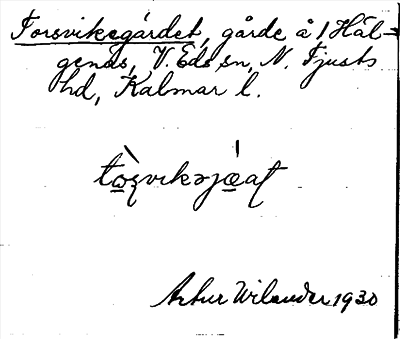 Torsvikegärdet, gärde å 1 Häl-
genäs, V. Eds sn, N. Tjusts
hd, Kalmar l.
Artur Wilander 1930